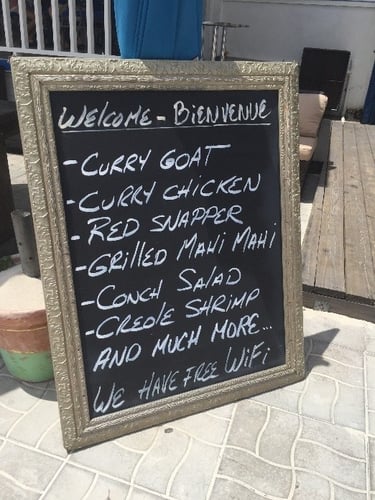 Welcome - Bienvenue
- Curry Goat
- Curry Chicken
- Red Snapper
- Grilled Mahi Mahi
- Conch Salad
- Creole Shrimp
And Much More...
We Have Free WiFi